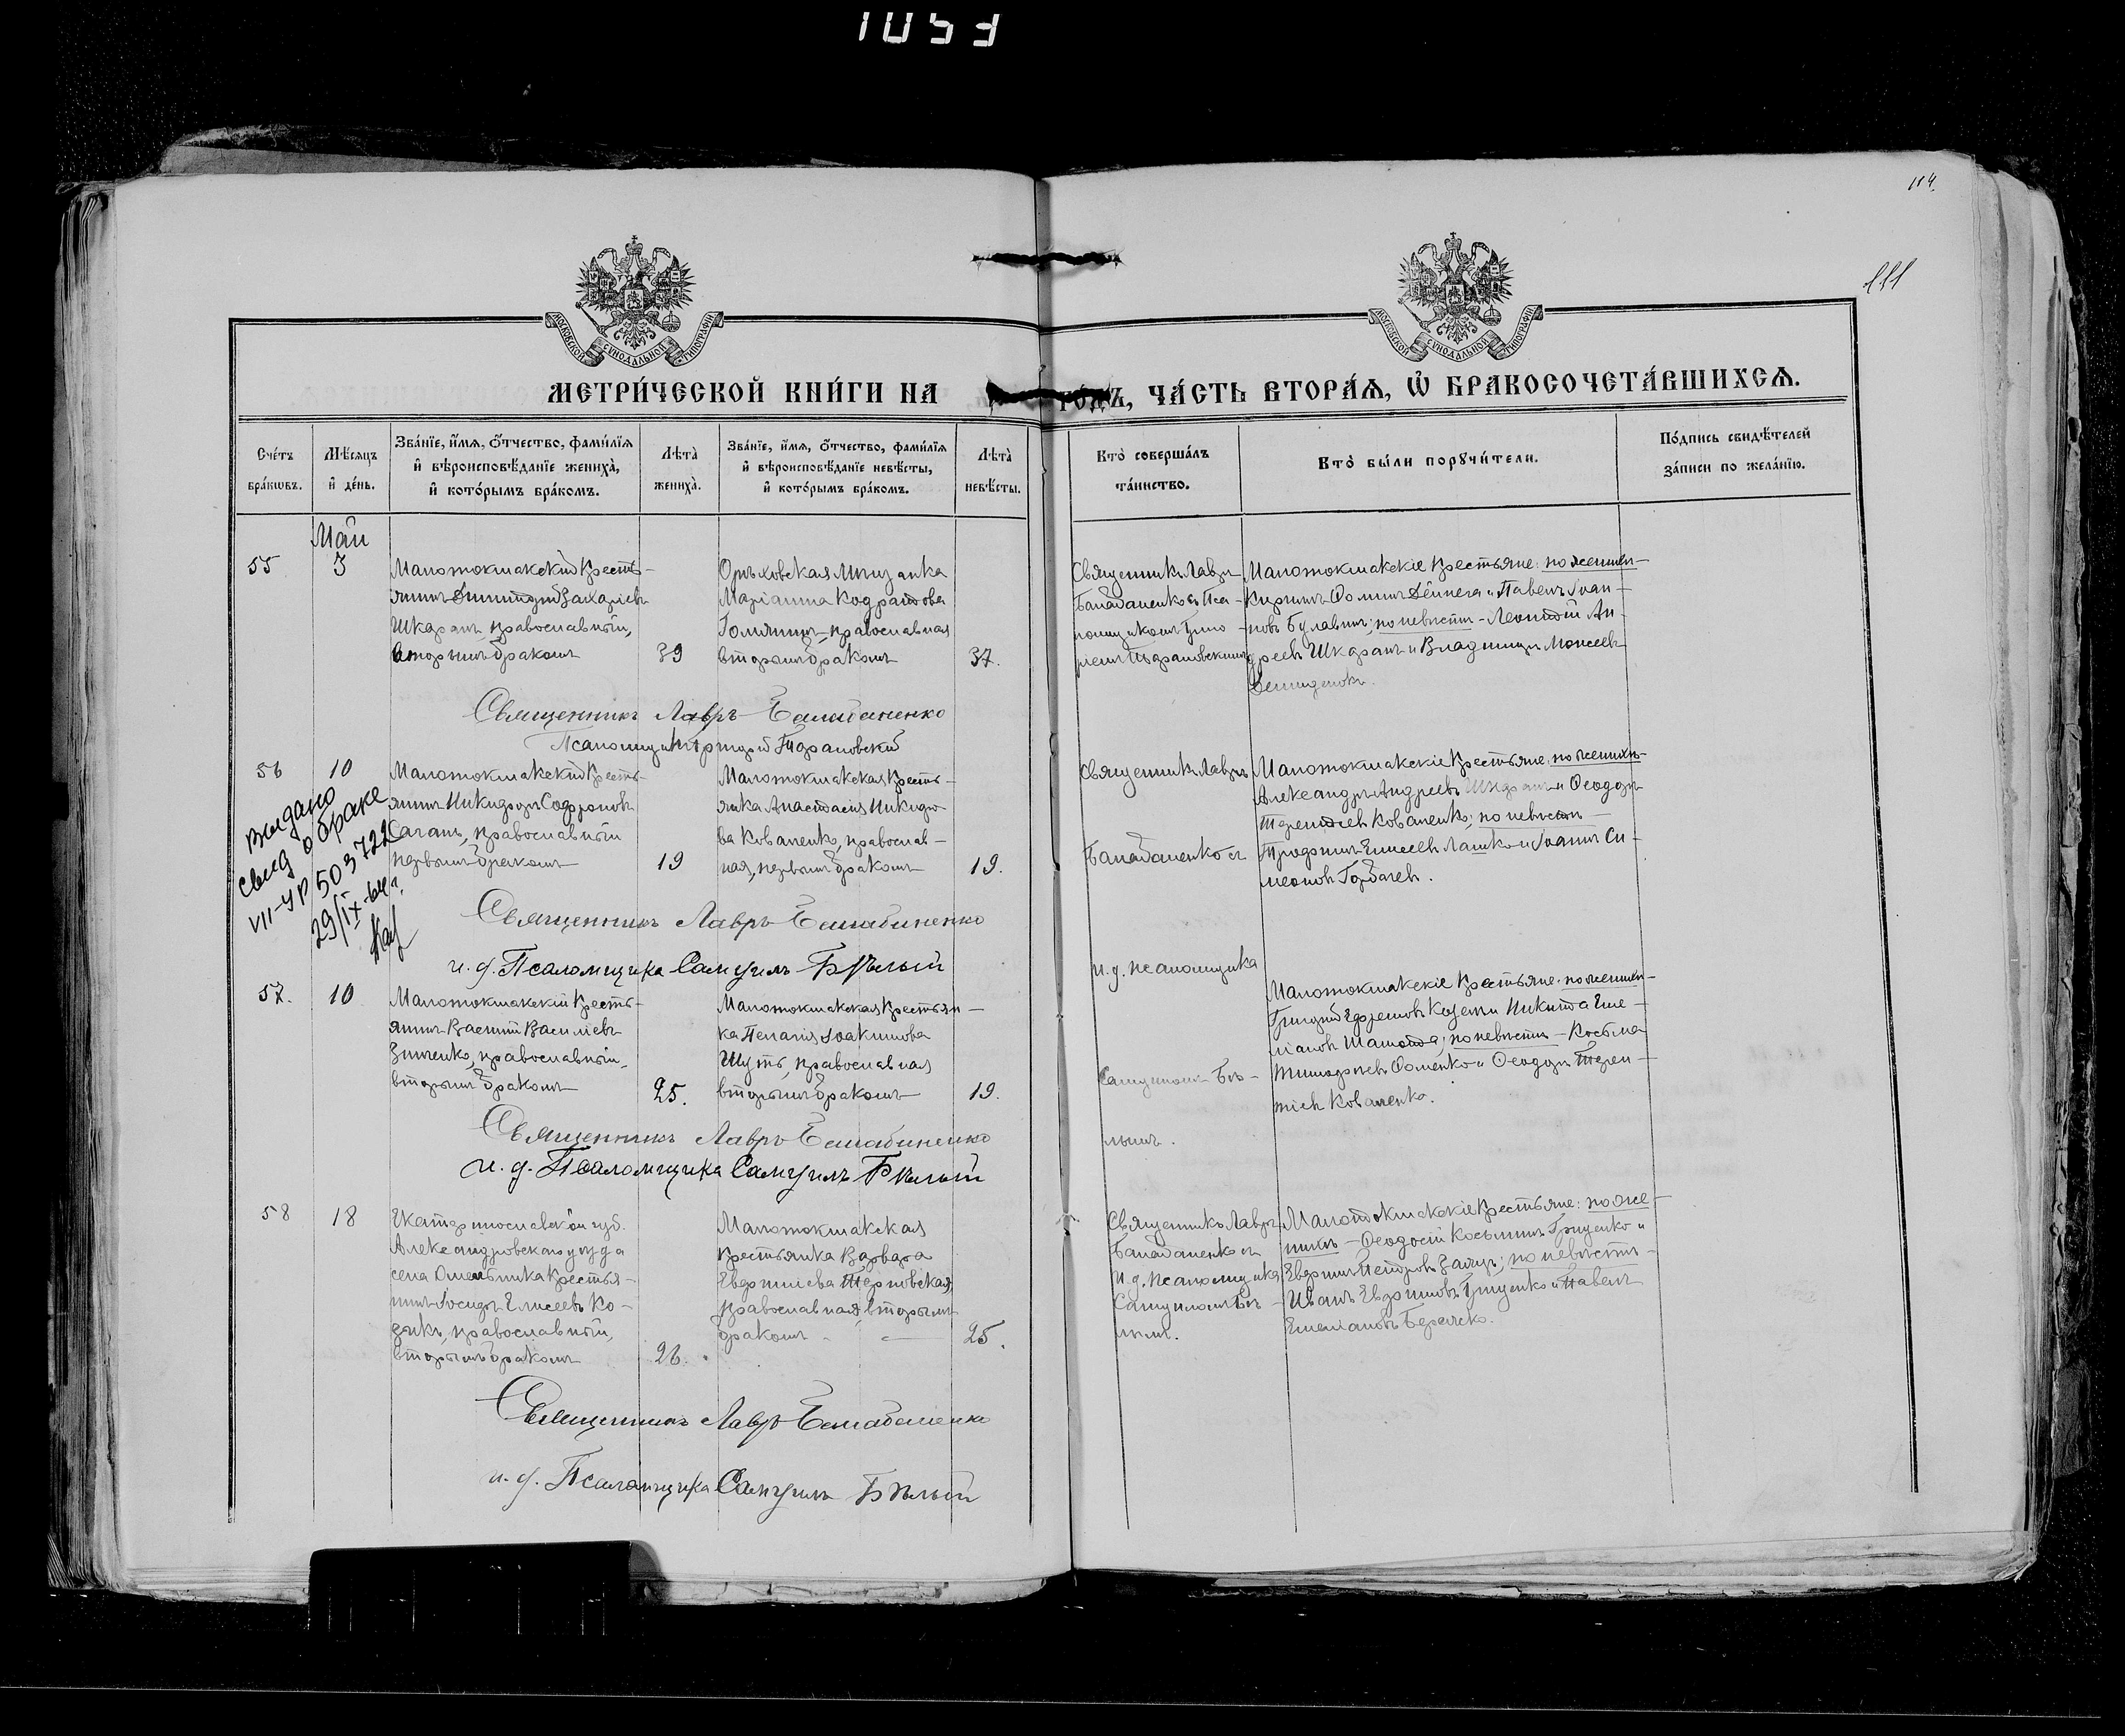 1053
114.
111
МОСКОВСКОЙ СѴНОДАЛЬНОЙ ТИПОГРАФІИ
МОСКОВСКОЙ СѴНОДАЛЬНОЙ ТИПОГРАФІИ
МЕТРИ́ЧЕСКОЙ КНИ́ГИ НА ГО́ДЪ, ЧА́СТЬ ВТОРА́Ѧ, Ѡ҆ БРАКОСОЧЕТА́ВШИХСѦ.
Сче́тъ
бра́кѡвъ.
Мѣ́сѧцъ
и҆ де́нь.
Зва́нїе, и҆́мѧ, о҆́тчество, фами́лїѧ
и҆ вѣроисповѣ́данїе жениха̀,
и҆ кото́рымъ бра́комъ.
Лѣта̀
жениха̀.
Зва́нїе, и҆́мѧ, о҆́тчество, фами́лїѧ
и҆ вѣроисповѣ́данїе невѣ́сты,
и҆ кото́рымъ бра́комъ.
Лѣта̀
невѣ́сты.
Кто̀ соверша́лъ
та́инство.
Кто̀ бы́ли порꙋчи́тели.
По́дпись свидѣ́телей
за́писи по жела́нїю.
Май
55
3
Малотокмакскій кресть-
янинъ Димитрій Захаріевъ
Шкаранъ, православный,
вторымъ бракомъ
39
Орѣховская мѣщанка
Маріанна Кодратова
православная
вторымъ бракомъ
37.
Священникъ Лавръ
Балабаненко съ Пса-
ломщикомъ Григо-
ріемъ
Малотокмакскіе крестьяне: по жених-
Кириллъ Ѳоминъ Дейнега и Павелъ Іоан-
новъ Булавинъ; по невѣстѣ - Леонтій Ан-
дреевъ Шкаранъ и Владиміръ Моисеевъ
Демиденокъ.
Священникъ Лавръ Балабаненко
Псаломщикъ Григорій
56
10
Малотокмакскій кресть-
янинъ Никифоръ Софроновъ
Саганъ, православный
первымъ бракомъ
19
Малотокмакская кресть-
янка Анастасія Никифо-
ва Коваленко, православ-
ная, первымъ бракомъ
19.
Священникъ Лавръ
Балабаненко съ
Малотокмакскіе крестьяне: по женихѣ-
Александръ Андреевъ Шкаранъ и Ѳеодоръ
Терентіевъ Коваленко; по невѣстѣ -
Трофимъ Елисеевъ Лашко и Іоаннъ Си-
меоновъ Горбачевъ.
Выдано
свид о браке
VII-УР 503722
29/IX-64 г.
Священникъ Лавръ Балабаненко
и. д. Псаломщика Самуилъ Бѣлый
и. д. псаломщика
57.
10
Малотокмакскій кресть-
янинъ Василій Василіевъ
Зинченко, православный,
вторымъ бракомъ
25.
Малотокмакская крестьян-
ка Пелагія Іоакимова
Шуть, православная
вторымъ бракомъ
19.
Самуиломъ Бѣ-
лымъ.
Малотокмакскіе крестьяне: по жених-
Григорій Ефремовъ и Никита Еме-
ліановъ; по невѣстѣ - Косьма
Тимофеевъ Ѳоменко и Ѳеодоръ Терен-
тіевъ Коваленко.
Священникъ Лавръ Балабаненко
и. д. Псаломщика Самуилъ Бѣлый
58
18
Екатеринославской губ.
Александровскаго уѣзда
села Омельника крестья-
нинъ Іосифъ Елисеевъ Ко-
, православный,
вторымъ бракомъ
26.
Малотокмакская
крестьянка Варвара
Евфиміева Терновская,
православная, вторымъ
бракомъ
25.
Священникъ Лавръ
Балабаненко съ
и. д. псаломщика
Самуиломъ Бѣ-
лымъ.
Малотокмакскіе крестьяне: по же-
нихѣ - Ѳеодосій Косьминъ Гриценко и
Петровъ Заяцъ; по невѣстѣ -
Иванъ Евфимовъ Гриценко и Павелъ
Емеліановъ
Священникъ Лавръ Балабаненко
и. д. Псаломщика Самуилъ Бѣлый